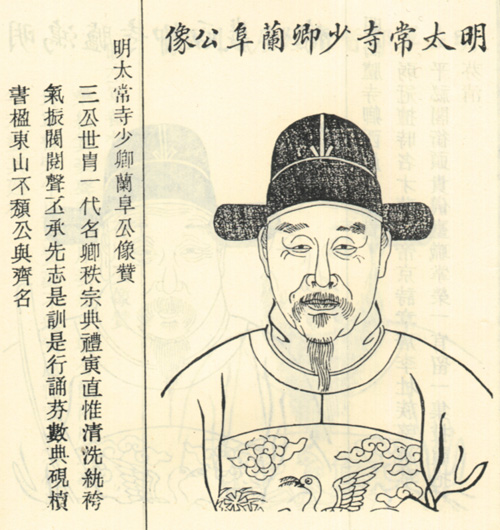 明太常寺少卿蘭阜公像
明太常寺少卿蘭阜公像贊
三公世胄一代名卿秩宗典禮寅直惟清洗紈袴
氣振閥閱聲丕承先志是訓是行誦芬數典硯櫝
書楹東山不頽公與齊名